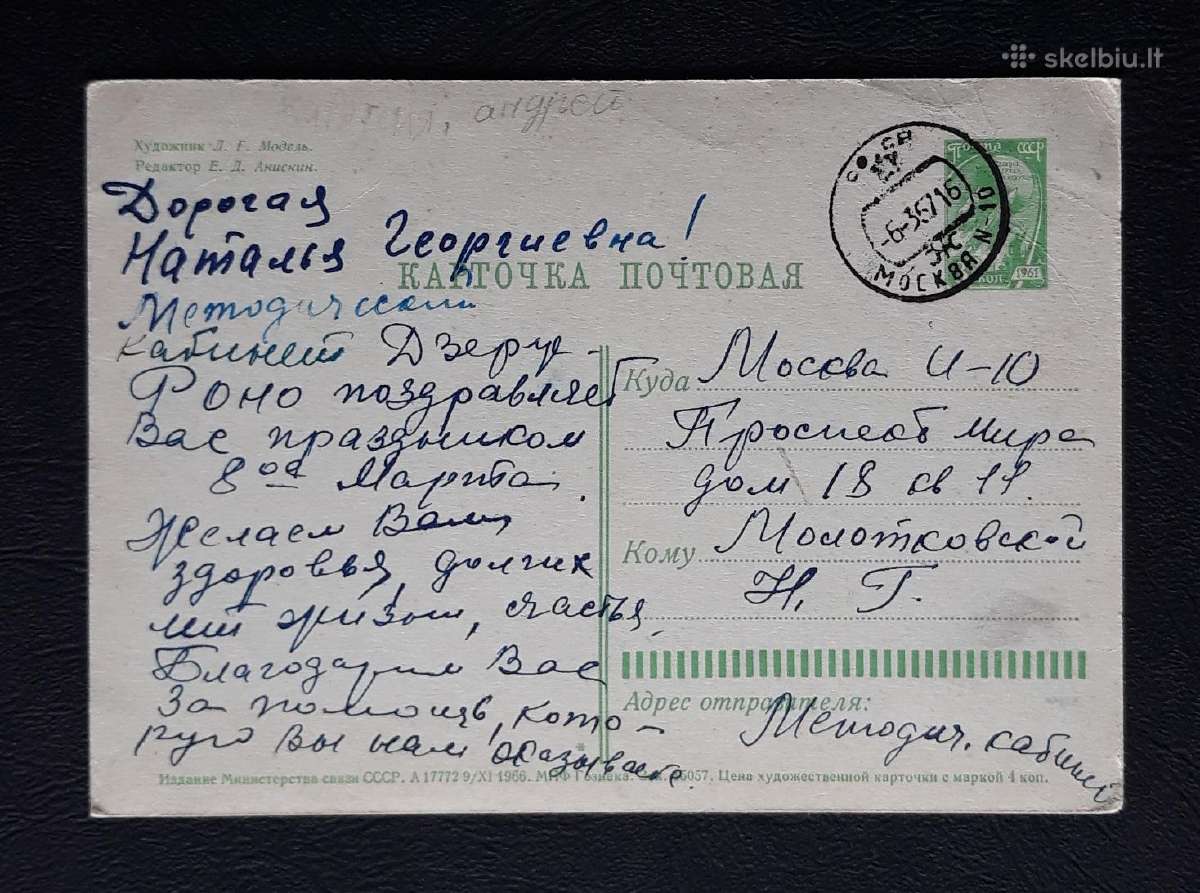 skelbiu.lt
андрей
Художник Л. Г. Модель.
Редактор Е. Д. Анискин.
Почта СССР
1961
МОСКВА И-10
-6-36716
КАРТОЧКА ПОЧТОВАЯ
Дорогая
Наталья Георгиевна!
Методический
кабинет Дзерж-
Роно поздравляет
Вас праздником
8ое Марта.
Желаем Вам
здоровья, долгих
лет жизни, счастья.
Благодарим Вас
за помощь, кото-
рую Вы нам оказываете.
Куда Москва И-10
Проспект Мира
дом 18 кв 11.
Кому Молотковской
Н. Г.
Адрес отправителя:
Методич. кабинет
Издание Министерства связи СССР. А 17772 9/XI 1966. МПФ Гознака. Цена художественной карточки с маркой 4 коп.